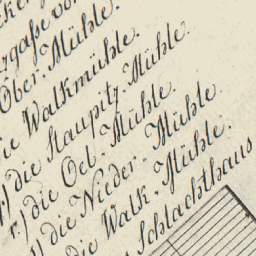 Ober. Mühle.
die Walkmühle.
die Staupitz. Mühle.
) die Oel. Mühle.
) die Nieder. Mühle.
die Walk. Mühle.
Schlachthaus